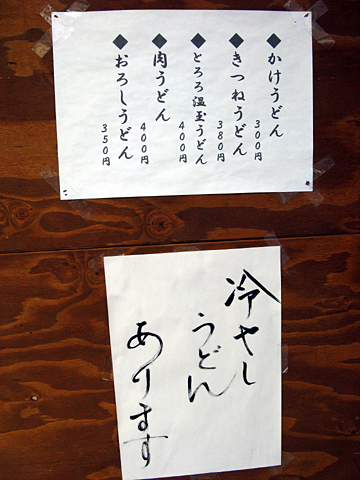 ◆かけうどん
300円
◆きつねうどん
380円
◆とろろ温玉うどん
400円
◆肉うどん
400円
◆おろしうどん
350円
冷やし
うどん
あります